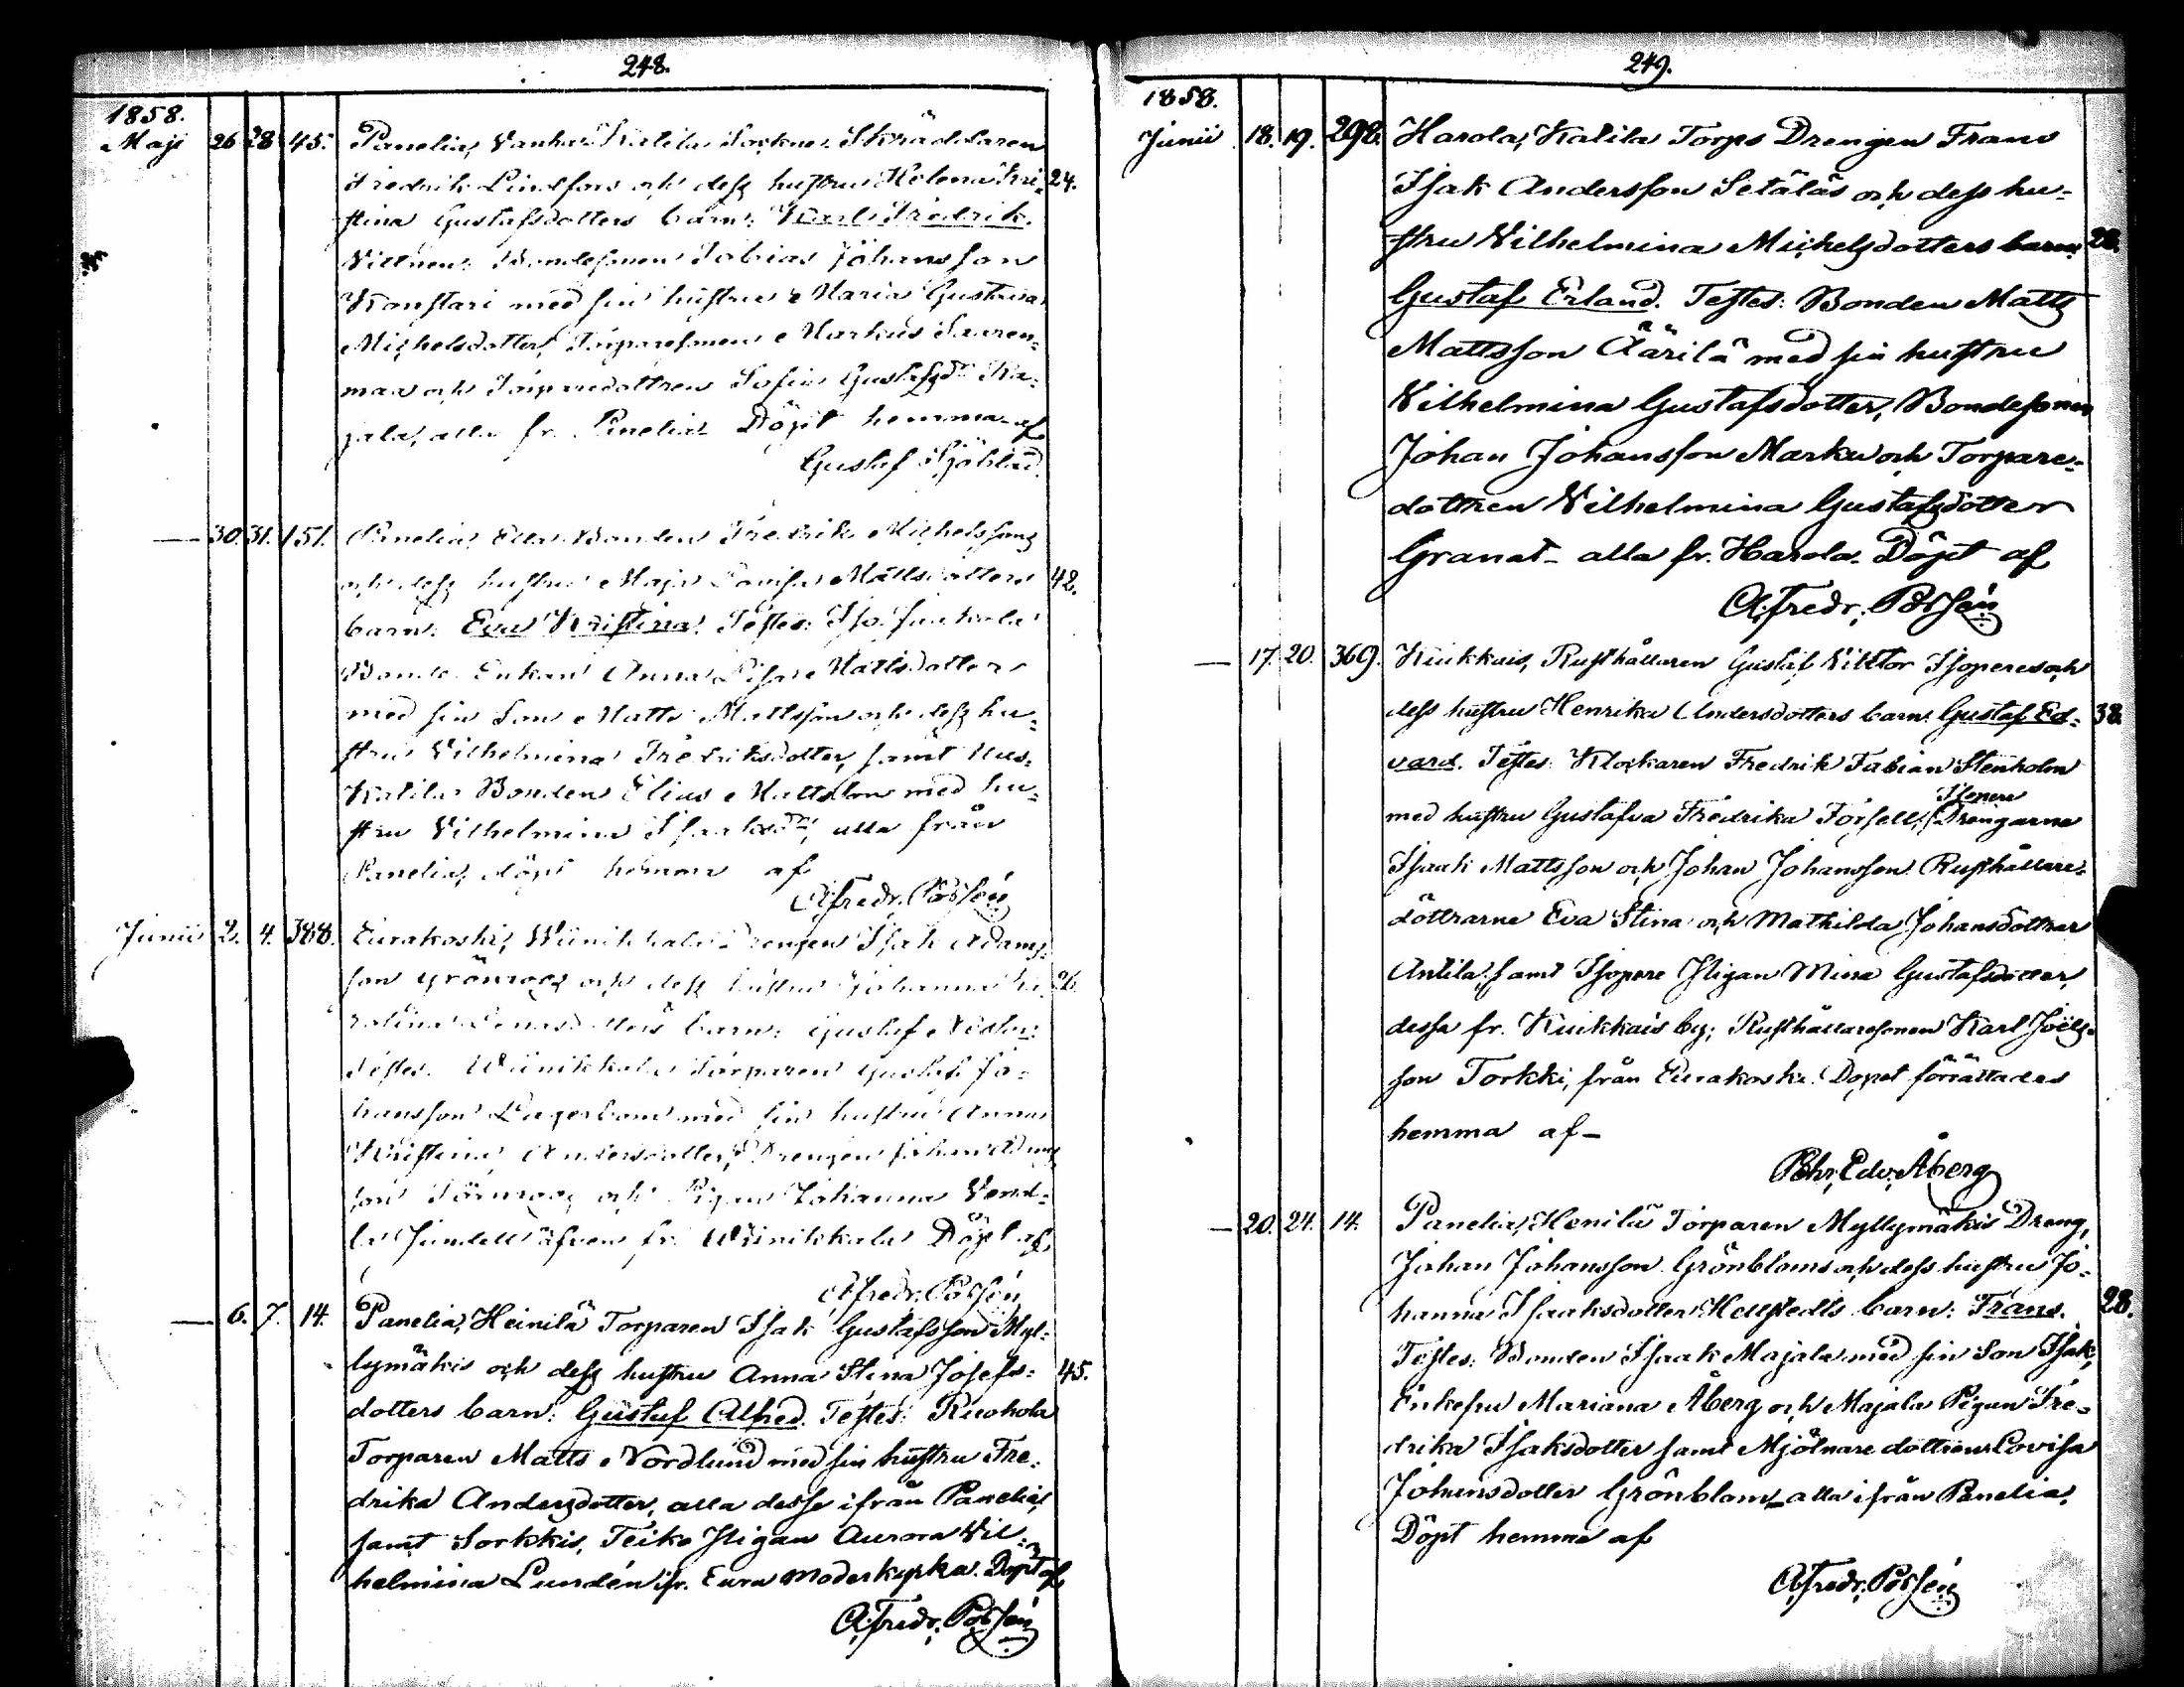 248.
1858.
Maji 26 28 45. Panelia, Vanha Katila Socknes Skräddaren
Fredrik Lindfors och dess hustru Helena Kri- 24.
stina Gustafsdotters barn: Karl Fredrik.
Vittnen: Bondesonen Tobias Johansson
Konstari med sin hustru Maria Gustava
Michelsdotter, Torparesonen Markus Suuren-
maa och Torparedottren Sofia Gustafsdr Ka-
jala, alla fr. Panelia. Döpt hemma af
Gustaf Sjöblad.
— 30. 31. 151. Panelia Bonden Fredrik Michelssons
och dess hustru Maja Lovisa Mattsdotters 42.
barn: Eva Kristina. Testes: Iso
Bonde Enkan Anna Lisa Mattsdotter
med sin Son Matts Mattsson och dess hu-
stru Vilhelmina Fredriksdotter, samt Uus-
Katila Bonden Elias Mattsson med hu-
stru Vilhelmina Isaksdr, alla från
Panelia, döpt hemma af
A. Fredr. Polsén
Junii 2. 4. 388. Eurakoski, Wiinikkala Drengen Isak Adams-
son Grönroos och dess hustru Johanna Ka- 26.
rolina dotters barn: Gustaf
Testes. Wiinikkala Torparen Gustaf Jo-
hansson Lagerbom med sin hustru Anna
Kristina Andersdotter, Drengen Johan
son Törnroos och Pigan Johanna Vend-
la Sundell äfven fr. Wiinikkala Döpt af
A. Fredr. Polsén
— 6. 7. 14. Panelia, Heinilä Torparen Isak Gustafsson Myl-
lymäkis och dess hustru Anna Stina Josefs- 45.
dotters barn: Gustaf Alfred. Testes: Ruohola
Torparen Matts Nordlund med sin hustru Fre-
drika Andersdotter, alla desse ifrån Panelia,
samt Sorkkis, Teiko Pigan Aurora Vil-
helmina Lundén ifr. Eura moderkyrka. Döpt af
A. Fredr. Polsén
249.
1858.
Junii 18. 19. 298. Harola, Katila Torps Drengen Frans
Isak Andersson Setäläs och dess hu-
stru Vilhelmina Michelsdotters barn: 28.
Gustaf Erland. Testes: Bonden Matts
Mattsson Äärilä med sin hustru
Vilhelmina Gustafsdotter, Bondesonen
Johan Johansson Marku och Torpare-
dottren Vilhelmina Gustafsdotter
Granat - alla fr. Harola. Döpt af
A. Fredr. Polsén
— 17. 20. 369. Kiukkais, Rusthållaren Gustaf Viktor Isoperes och
dess hustru Henrika Andersdotters barn: Gustaf Ed- 38.
vard. Testes: Klockaren Fredrik Fabian Stenholm
Isopere
med hustru Gustafva Fredrika Forsell, Drengarne
Isaak Mattsson och Johan Johansson. Rusthållare-
döttrarne Eva Stina och Mathilda Johansdöttrar
Antila, samt Isopere Pigan Mina Gustafsdotter,
dessa fr. Kiukkais by; Rusthållaresonen Karl Joëls-
son Torkki, från Eurakoski. Döpet förrättades
hemma af -
Pehr Edv. Åberg
— 20. 24. 14. Panelia, Heinilä Torparen Myllymäkis Dreng,
Johan Johansson Grönbloms och dess hustru Jo-
hanna Isaaksdotter Hellstedts barn: Frans. 28.
Testes: Bonden Isaak Majala med sin Son Isak,
Enkefru Mariana Åberg och Majala Pigan Fre-
drika Isaksdotter samt Mjölnare dottren Lovisa
Johansdotter Grönblom - alla ifrån Panelia.
Döpt hemma af
A. Fredr. Polsén